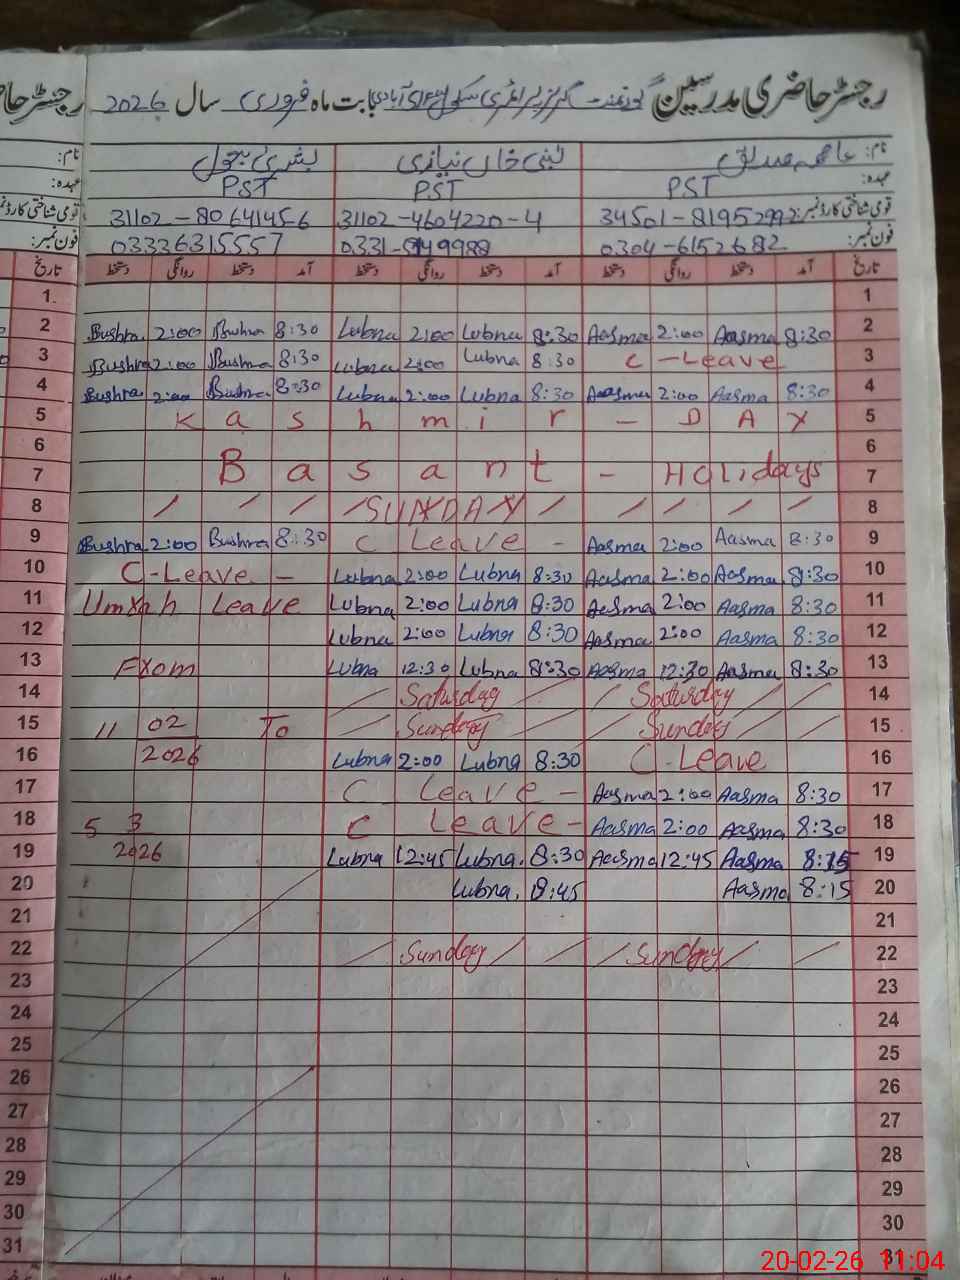 رجسٹر حاضری مدرسین گورنمنٹ گرلز پرائمری سکول بابت ماہ فروری سال 2026
نام: عاصمہ صدیق لبنیٰ خان نیازی بشریٰ بتول نام:
PST PST PST عہدہ:
قومی شناختی کارڈ نمبر: 34501-81952992 31102-4604220-4 31102-8064145-6
فون نمبر: 0304-6152682 0331- 9988 03336315557 فون نمبر:
تاریخ دستخط روانگی دستخط آمد دستخط روانگی دستخط آمد دستخط روانگی دستخط آمد تاریخ
1 1
2 Bushra 2:00 Bushra 8:30 Lubna 2:00 Lubna 8:30 Aasma 2:00 Aasma 8:30 2
3 Bushra 2:00 Bushra 8:30 Lubna 2:00 Lubna 8:30 C-Leave 3
4 Bushra 2:00 Bushra 8:30 Lubna 2:00 Lubna 8:30 Aasma 2:00 Aasma 8:30 4
5 Kashmir - DAY 5
6 6
7 Basant - Holidays 7
8 SUNDAY 8
9 Bushra 2:00 Bushra 8:30 C Leave - Aasma 2:00 Aasma 8:30 9
10 C-Leave - Lubna 2:00 Lubna 8:30 Aasma 2:00 Aasma 8:30 10
11 Umrah Leave Lubna 2:00 Lubna 8:30 Aasma 2:00 Aasma 8:30 11
12 Lubna 2:00 Lubna 8:30 Aasma 2:00 Aasma 8:30 12
13 From Lubna 12:30 Lubna 8:30 Aasma 12:30 Aasma 8:30 13
14 Saturday Saturday 14
15 11 02 To Sunday Sunday 15
16 2026 Lubna 2:00 Lubna 8:30 C-Leave 16
17 C Leave - Aasma 2:00 Aasma 8:30 17
18 5 3 C Leave - Aasma 2:00 Aasma 8:30 18
19 2026 Lubna 12:45 Lubna. 8:30 Aasma 12:45 Aasma 8:15 19
20 Lubna. 8:45 Aasma 8:15 20
21 21
22 Sunday Sunday 22
23 23
24 24
25 25
26 26
27 27
28 28
29 29
30 30
31 31
20-02-26 11:04